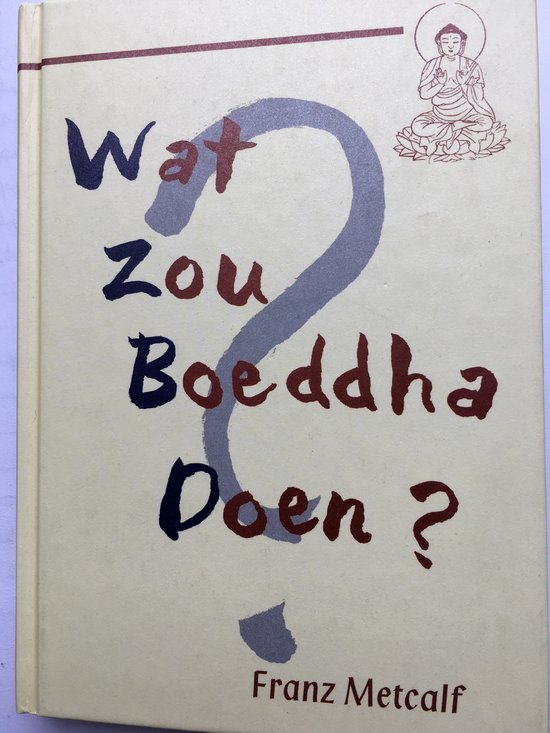 Wat
Zou
Boeddha
Doen?
Franz Metcalf